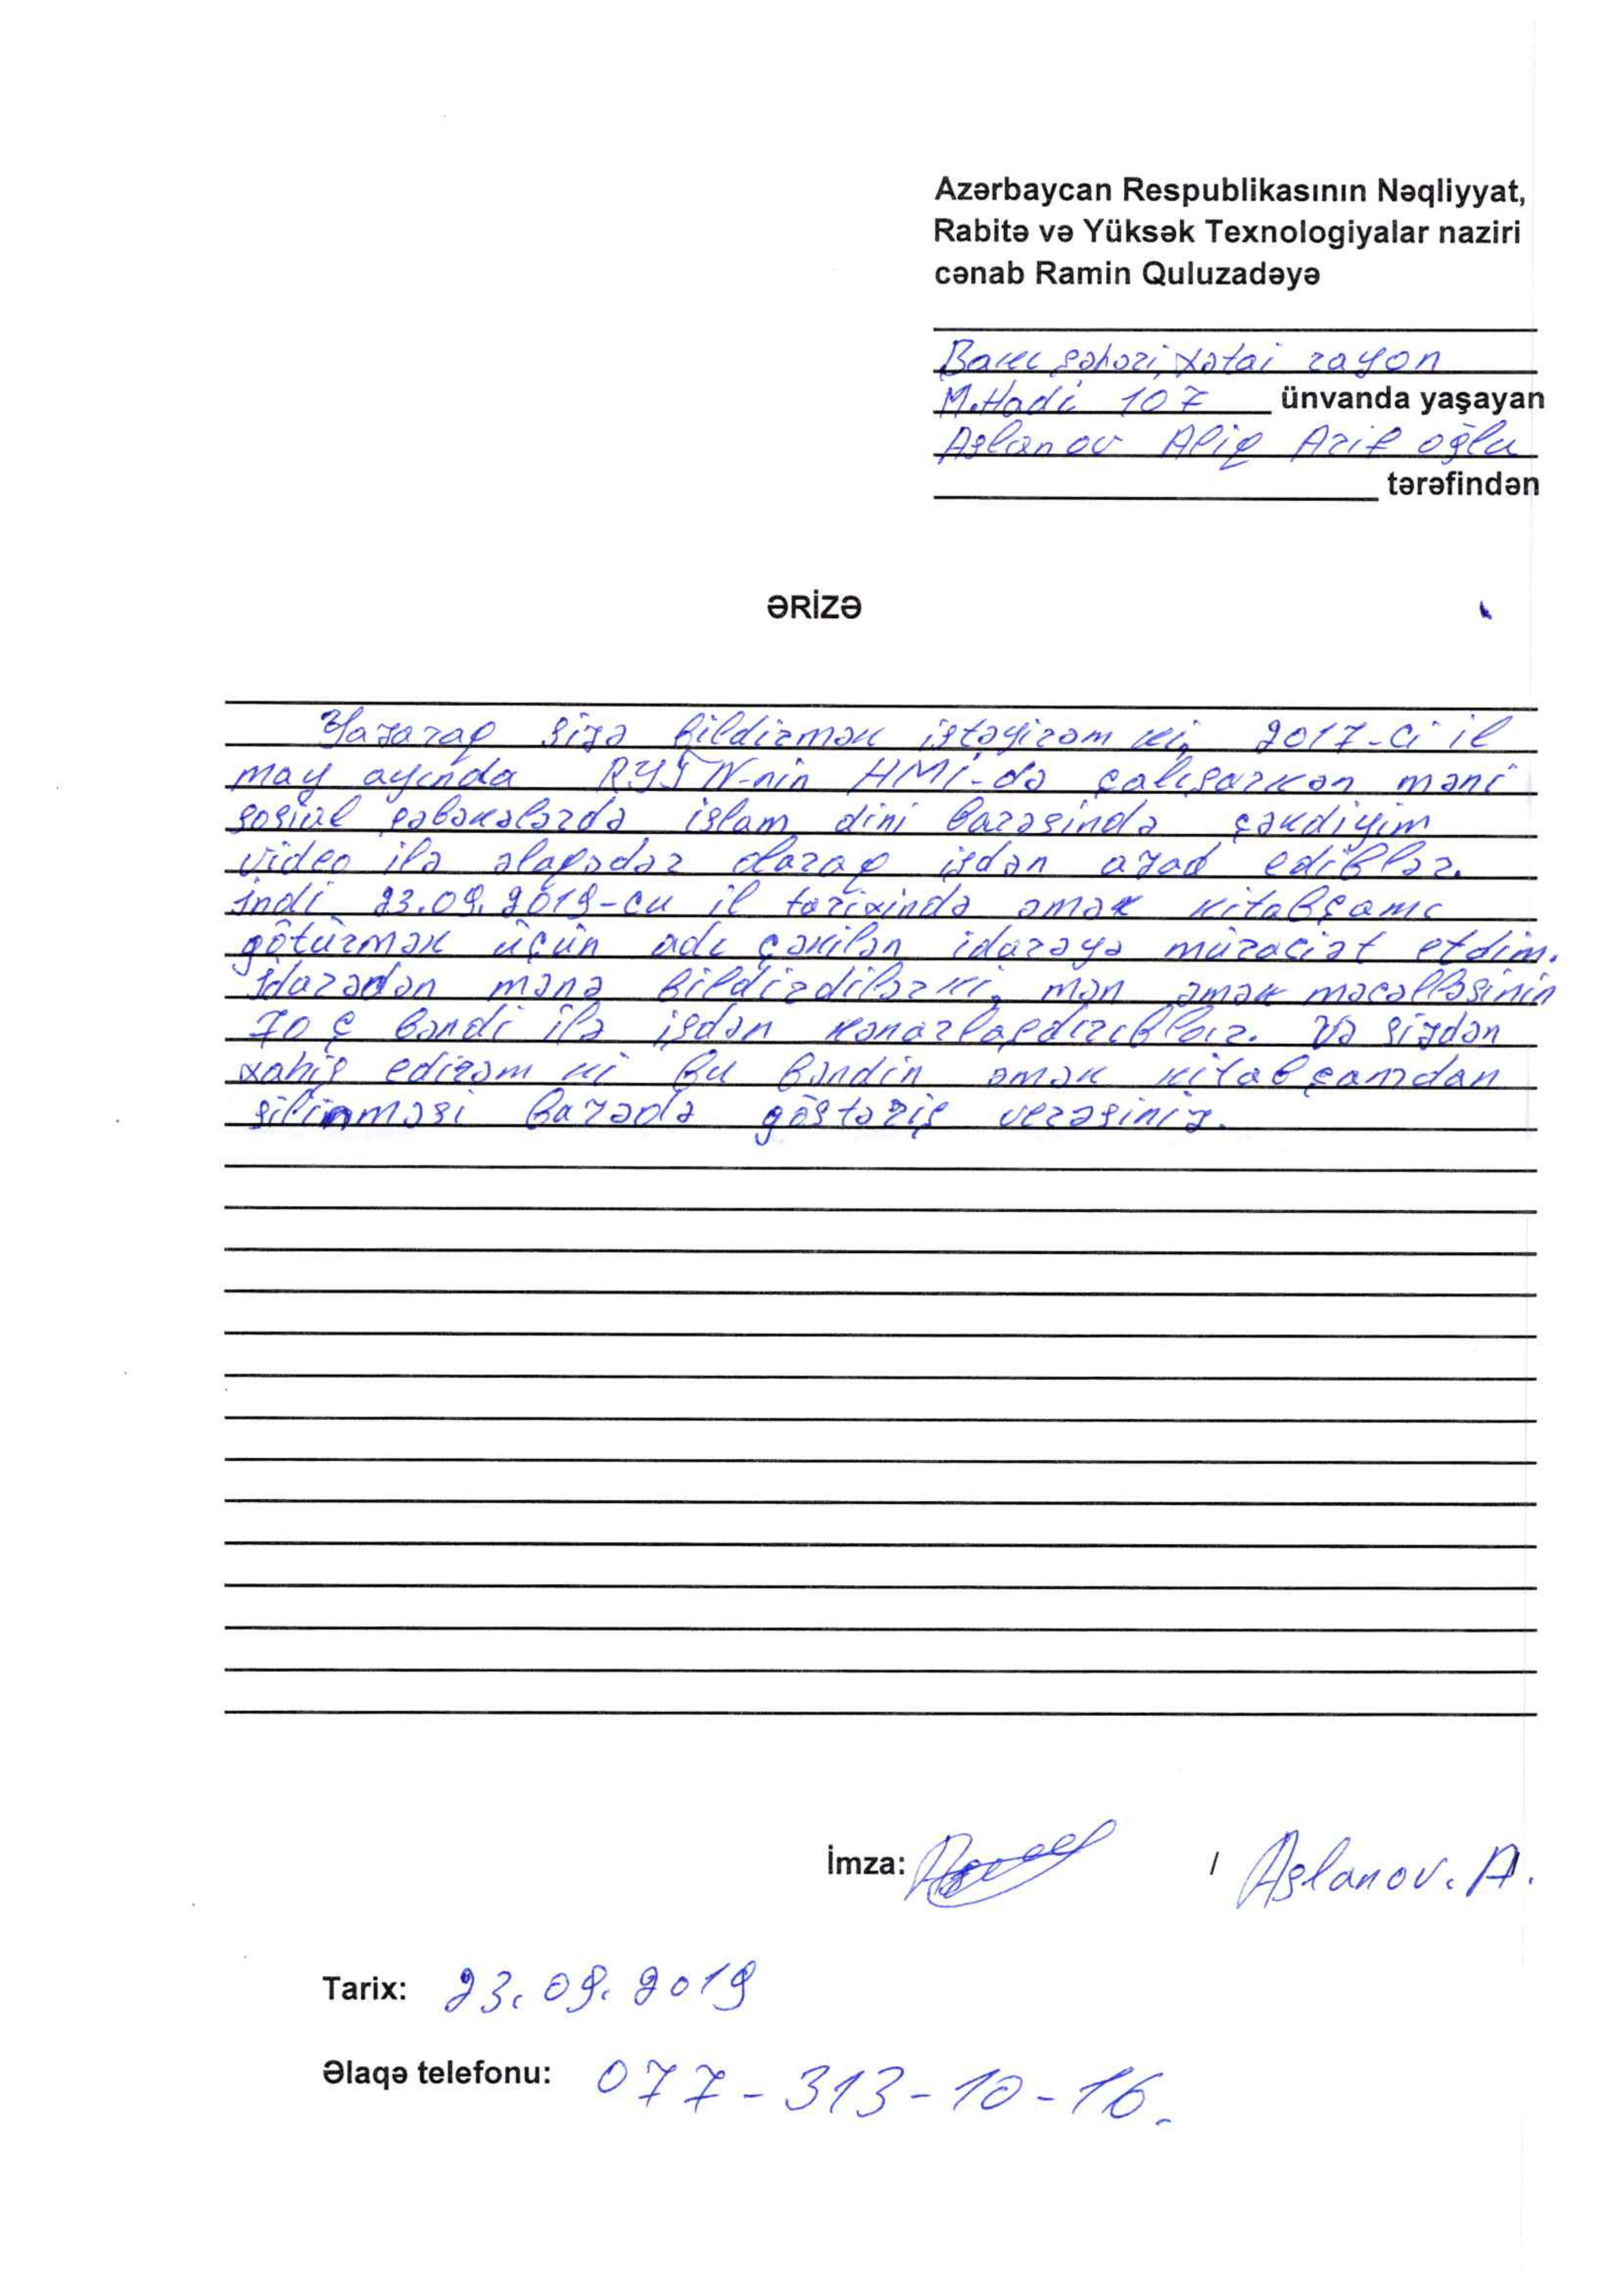 Azərbaycan Respublikasının Nəqliyyat,
Rabitə və Yüksək Texnologiyalar naziri
cənab Ramin Quluzadəyə
Bakı şəhəri, Xətai rayon
M.Hadi 107 ünvanda yaşayan
Aslanov Arif oğlu
tərəfindən
ƏRİZƏ
Yazaraq sizə bildirmək istəyirəm ki, 2017-ci il
may ayında RYTN-nin HMİ-də çalışarkən məni
sosial şəbəkələrdə islam dini barəsində çəkdiyim
video ilə əlaqədar olaraq işdən azad ediblər.
indi 23.09.2019-cu il tarixində əmək kitabçamı
götürmək üçün adı çəkilən idarəyə müraciət etdim.
İdarədən mənə bildirdilər ki, mən əmək məcəlləsinin
70 ç bəndi ilə işdən kənarlaşdırıblar. Və sizdən
xahiş edirəm ki bu bəndin əmək kitabçamdan
silinməsi barədə göstəriş verəsiniz.
İmza: / Aslanov. A.
Tarix: 23.09.2019
Əlaqə telefonu: 077-313-10-16.